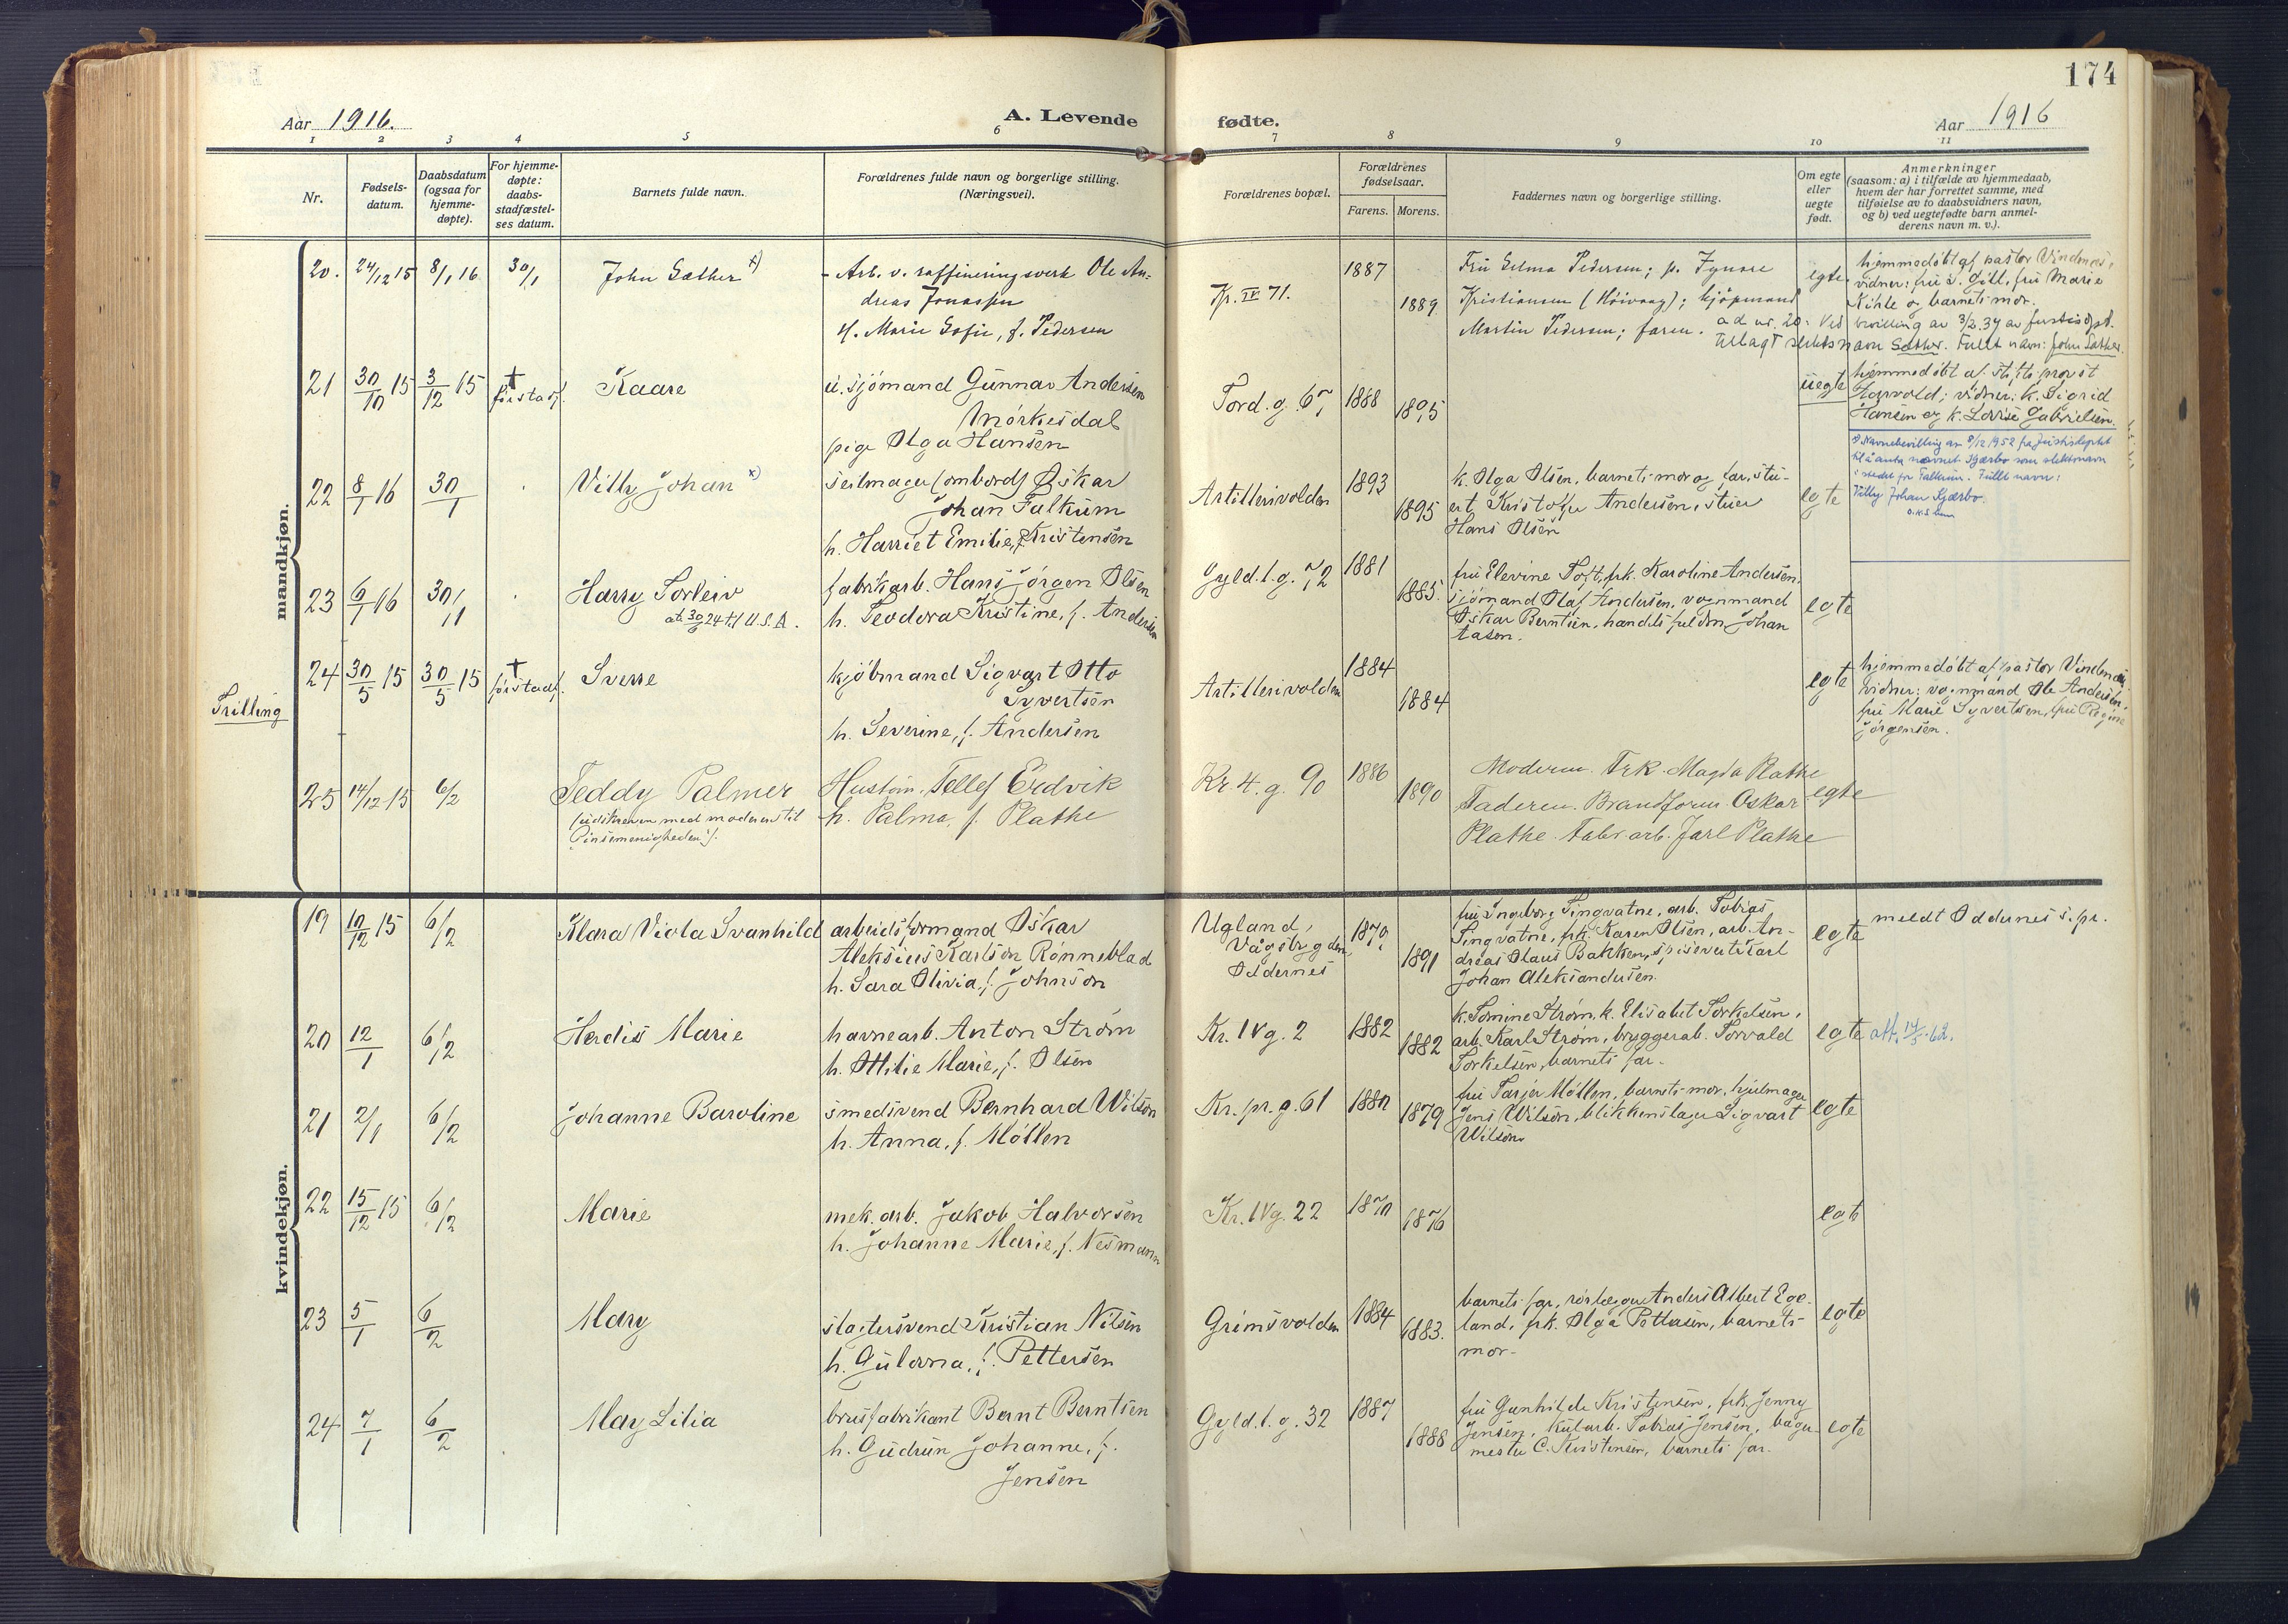 174
Aar 1916.
A. Levende
fødte.
Aar 1916
1 2 3 4 5 6 7 8 9 10 11
Nr.
Fødsels-
datum.
Daabsdatum
(ogsaa for
hjemme-
døpte).
For hjemme-
døpte:
daabs-
stadfæstel-
ses datum.
Barnets fulde navn.
Forældrenes fulde navn og borgerlige stilling.
(Næringsvei).
Forældrenes bopæl.
Forældrenes
fødselsaar.
Farens. Morens.
Faddernes navn og borgerlige stilling.
Om egte
eller
uegte
født.
Anmerkninger
(saasom: a) i tilfælde av hjemmedaab,
hvem der har forrettet samme, med
tilføielse av to daabsvidners navn,
og b) ved uegtefødte barn anmel-
derens navn m. v.).
mandkjøn.
20. 24/12 15 8/1 16 30/1 John Sæther x)
- Arb. v. raffineringsverk Ole An-
dreas Jonassen
h. Marie Sofie, f. Pedersen
Kr. IV 71.
1887
1889
Fru Selma Pedersen; p. Ignore
Kristiansen (Høivaag); kjøpmand
Martin Pedersen; faren.
egte
hjemmedøbt af pastor Vindenes;
vidner: fru S. Gill, fru Marie
Kihle og barnets mor.
ad nr. 20: Ved bevilling av 3/2.34 av justisdpt.
tillagt slektsnavn Sæther. Fullt navn: John Sæther.
21 30/10 15 3/12 15 † før stadf. Kaare
u. sjømand Gunnar Andersen
Mørkesdal
pige Olga Hansen
Tord. g. 67
1888
1895
uegte
hjemmedøbt af stiftsprovst
Hansen og k. Lovise Gabrielsen.
22 8/1 16 30/1 Villy Johan x)
seilmager (ombord) Oskar
Johan Falkum
h. Harriet Emilie, f. Kristensen
Artillerivolden
1893
1895
k. Olga Olsen, barnets mor og far, stu-
ert Kristoffer Andersen, stuer
Hans Olsen
egte
Navnebevilling av 8/12 1952 fra Justisdeptet
til å anta navnet Kjærbo som slektsnavn
i stedet for Falkum. Fullt navn:
Villy Johan Kjærbo.
23 6/1 16 30/1 Harry Torleiv
att. 30/6 24 til U.S.A.
fabrikarb. Hans Jørgen Olsen
h. Teodora Kristine, f. Andersen
Gyld. l. g. 72
1881
1885.
fru Elevine Toft, frk. Karoline Andersen,
sjømand Olaf Andersen, vognmand
Oskar Berntsen, handelsfuldm. Johan
egte
Trilling
24 30/5 15 30/5 15 † før stadf. Sverre
kjøbmand Sigvart Otto
Syvertsen
h. Severine, f. Andersen
Artillerivolden
1884
1884
egte
hjemmedøbt af pastor Vindenes.
Vidner: vognmand Ole Andersen,
fru Marie Syvertsen, fru Regine
Jørgensen.
25 14/12 15 6/2 Teddy Palmer
(udskreven med moderen til
Pinsemenigheden).
Hustøm. Tellef Eidvik
h. Palma, f. Plathe
Kr. 4. g. 90
1886
1890
Moderen. Frk. Magda Plathe
Faderen. Brandform. Oskar
Plathe. Fabr. arb. Jarl Plathe
egte
kvindekjøn.
19 10/12 15 6/2 Klara Viola Svanhild
arbeidsformand Oskar
Aleksius Karlson Rønneblad
h. Sara Olivia, f. Johnson
Ugland,
Vågsbygden,
Oddernes
1870
1891
fru Ingeborg Tingvatne, arb. Tobias
Tingvatne, frk. Karen Olsen, arb. An-
dreas Olaus Bakken, spisevert Karl
Johan Aleksandersen.
egte
meldt Oddernes s. pr.
20 12/1 6/2 Herdis Marie
havnearb. Anton Strøm
h. Ottilie Marie, f. Olsen
Kr. IV g. 2
1882
1882
k. Tomine Strøm, k. Elisabet Torkelsen,
arb. Karl Strøm, bryggerarb. Torvald
Torkelsen, barnets far.
egte
att. 14/5. 62.
21 2/1 6/2 Johanne Baroline
smedsvend Bernhard Wilson
h. Anna, f. Møllen
Kr. pr. g. 61
1880
1879
fru Tarjer Møllen, barnets mor, hjulmager
Jens Wilson, blikkenslager Sigvart
Wilson
egte
22 15/12 15 6/2 Marie
mek. arb. Jakob Halvorsen
h. Johanne Marie, f. Nesmann
Kr. IV g. 22
1870
1876
egte
23 5/1 6/2 Mary
slagtersvend Kristian Nilsen
h. Gulorna, f. Pettersen
Grimsvolden
1884
1883.
barnets far, rørlægger Anders Albert Ege-
land, frk. Olga Pettersen, barnets
mor
egte
24 7/1 6/2 May Lilia
brusfabrikant Bernt Berntsen
h. Gudrun Johanne, f.
Jensen
Gyld. l. g. 32
1887
1888
fru Gunhilde Kristensen, frk. Jenny
Jensen, kularb. Tobias Jensen, bager-
mester C. Kristensen, barnets far.
egte